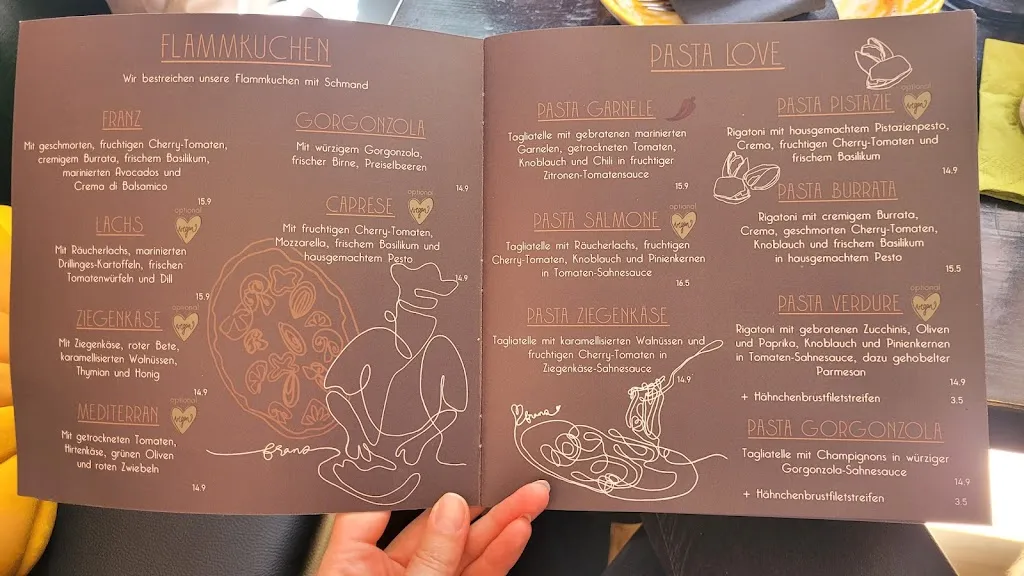 FLAMMKUCHEN
Wir bestreichen unsere Flammkuchen mit Schmand
FRANZ
Mit geschmorten, fruchtigen Cherry-Tomaten,
cremigem Burrata, frischem Basilikum,
marinierten Avocados und
Crema di Balsamico
15.9
LACHS
optional
vegan?
Mit Räucherlachs, marinierten
Drillings-Kartoffeln, frischen
Tomatenwürfeln und Dill
15.9
ZIEGENKÄSE
optional
vegan?
Mit Ziegenkäse, roter Bete,
karamellisierten Walnüssen,
Thymian und Honig
14.9
MEDITERRAN
optional
vegan?
Mit getrockneten Tomaten,
Hirtenkäse, grünen Oliven
und roten Zwiebeln
14.9
GORGONZOLA
Mit würzigem Gorgonzola,
frischer Birne, Preiselbeeren
14.9
CAPRESE
optional
vegan?
Mit fruchtigen Cherry-Tomaten,
Mozzarella, frischem Basilikum und
hausgemachtem Pesto
14.9
franz
PASTA LOVE
PASTA GARNELE
Tagliatelle mit gebratenen marinierten
Garnelen, getrockneten Tomaten,
Knoblauch und Chili in fruchtiger
Zitronen-Tomatensauce
15.9
PASTA SALMONE
optional
vegan?
Tagliatelle mit Räucherlachs, fruchtigen
Cherry-Tomaten, Knoblauch und Pinienkernen
in Tomaten-Sahnesauce
16.5
PASTA ZIEGENKÄSE
Tagliatelle mit karamellisierten Walnüssen und
fruchtigen Cherry-Tomaten in
Ziegenkäse-Sahnesauce
14.9
PASTA PISTAZIE
optional
vegan?
Rigatoni mit hausgemachtem Pistazienpesto,
Crema, fruchtigen Cherry-Tomaten und
frischem Basilikum
14.9
PASTA BURRATA
Rigatoni mit cremigem Burrata,
Crema, geschmorten Cherry-Tomaten,
Knoblauch und frischem Basilikum
in hausgemachtem Pesto
15.5
PASTA VERDURE
optional
vegan?
Rigatoni mit gebratenen Zucchinis, Oliven
und Paprika, Knoblauch und Pinienkernen
in Tomaten-Sahnesauce, dazu gehobelter
Parmesan
14.9
+ Hähnchenbrustfiletstreifen 3.5
PASTA GORGONZOLA
Tagliatelle mit Champignons in würziger
Gorgonzola-Sahnesauce
14.9
+ Hähnchenbrustfiletstreifen 3.5